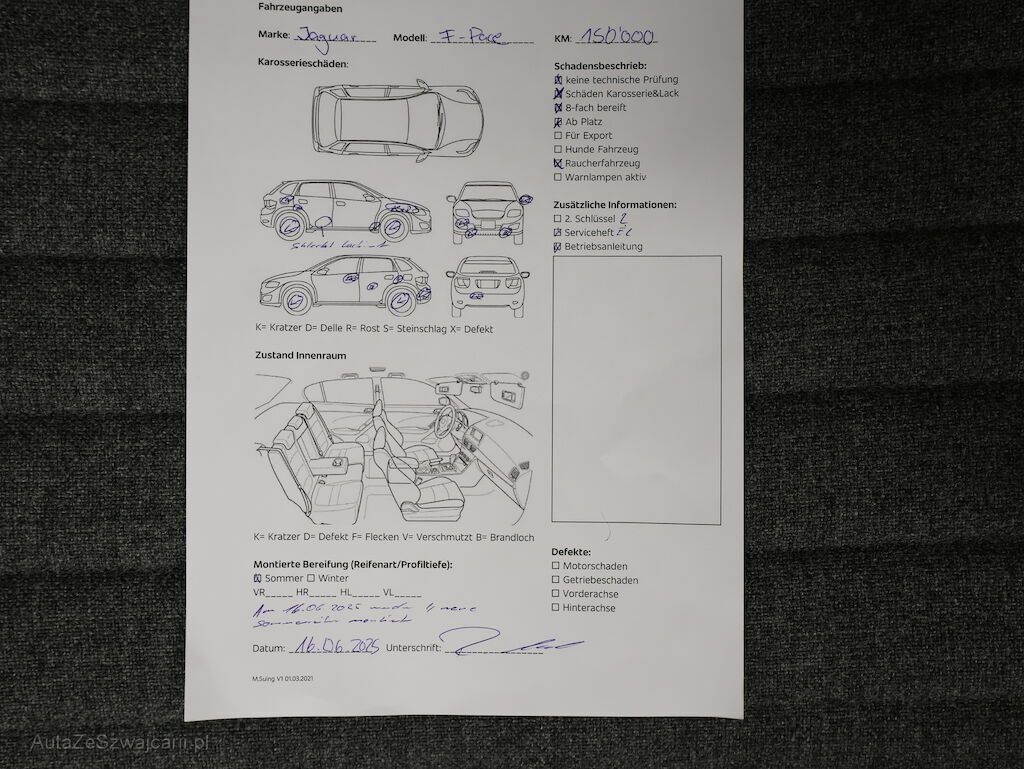 Fahrzeugangaben
Marke: Jaguar Modell: F-Pace KM: 150'000
Karosserieschäden:
Schadensbeschrieb:
keine technische Prüfung
Schäden Karosserie&Lack
8-fach bereift
Ab Platz
Für Export
Hunde Fahrzeug
Raucherfahrzeug
Warnlampen aktiv
Zusätzliche Informationen:
2. Schlüssel 2
Serviceheft El
Betriebsanleitung
schlecht lackiert
K= Kratzer D= Delle R= Rost S= Steinschlag X= Defekt
Zustand Innenraum
K= Kratzer D= Defekt F= Flecken V= Verschmutzt B= Brandloch
Montierte Bereifung (Reifenart/Profiltiefe):
Sommer Winter
VR_____ HR_____ HL_____ VL_____
Am 16.06 2025 wurden 4 neue
Sommerreifen montiert
Datum: 16.06.2025 Unterschrift:
Defekte:
Motorschaden
Getriebeschaden
Vorderachse
Hinterachse
M.Suing V1 01.03.2021
AutaZeSzwajcarii.pl